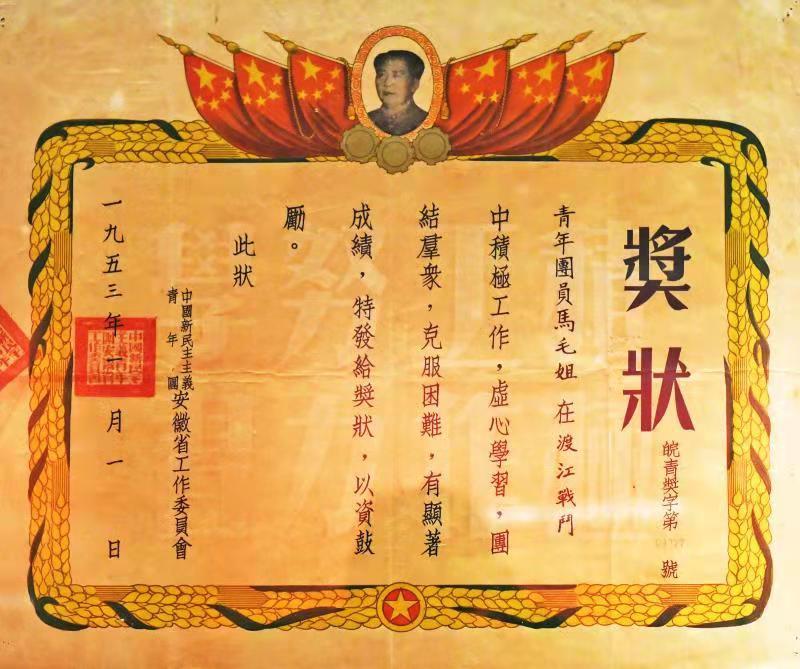 獎狀
皖青獎字第 號
青年團員馬毛姐 在渡江戰鬥
中積極工作，虛心學習，團
結羣衆，克服困難，有顯著
成績，特發給獎狀，以資鼓
勵。
此狀
中國新民主主義
青年團
安徽省工作委員會
一九五三年一月一日